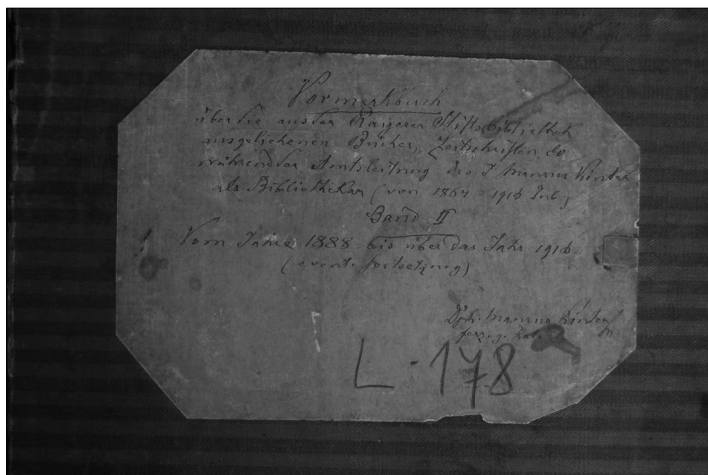 Vormerkbuch
über die aus der Raigerer Stiftsbibliothek
ausgeliehenen Bücher, Zeitschriften
während der Amtsleitung des P. Maurus Kinter
als Bibliothekar (von 1864 - 1916
Band II
Vom Jahre 1888 bis über das Jahr 1916
(event. Fortsetzung)
Maurus Kinter
L-178